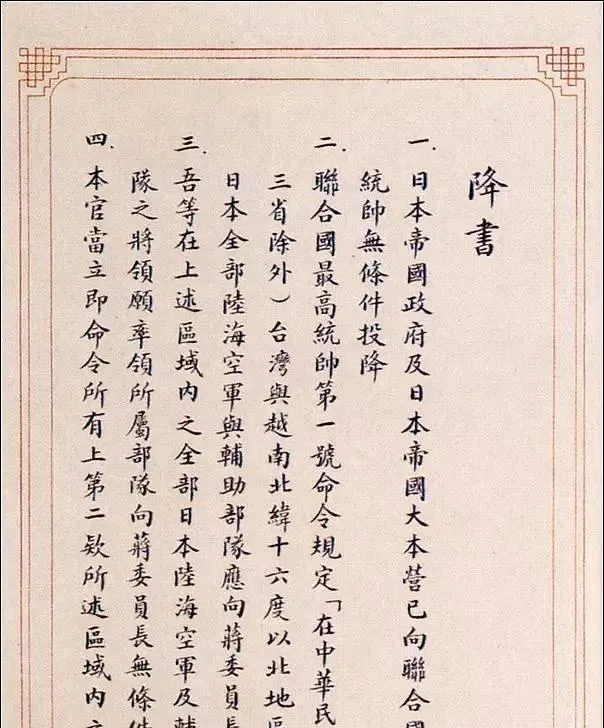 降書
一．日本帝國政府及日本帝國大本營已向聯合國
統帥無條件投降
二．聯合國最高統帥第一號命令規定「在中華民
三省除外）台灣與越南北緯十六度以北地區
日本全部陸海空軍與輔助部隊應向蔣委員長
三．吾等在上述區域內之全部日本陸海空軍及輔
隊之將領願率領所屬部隊向蔣委員長無條件
四．本官當立即命令所有上第二欵所述區域內之